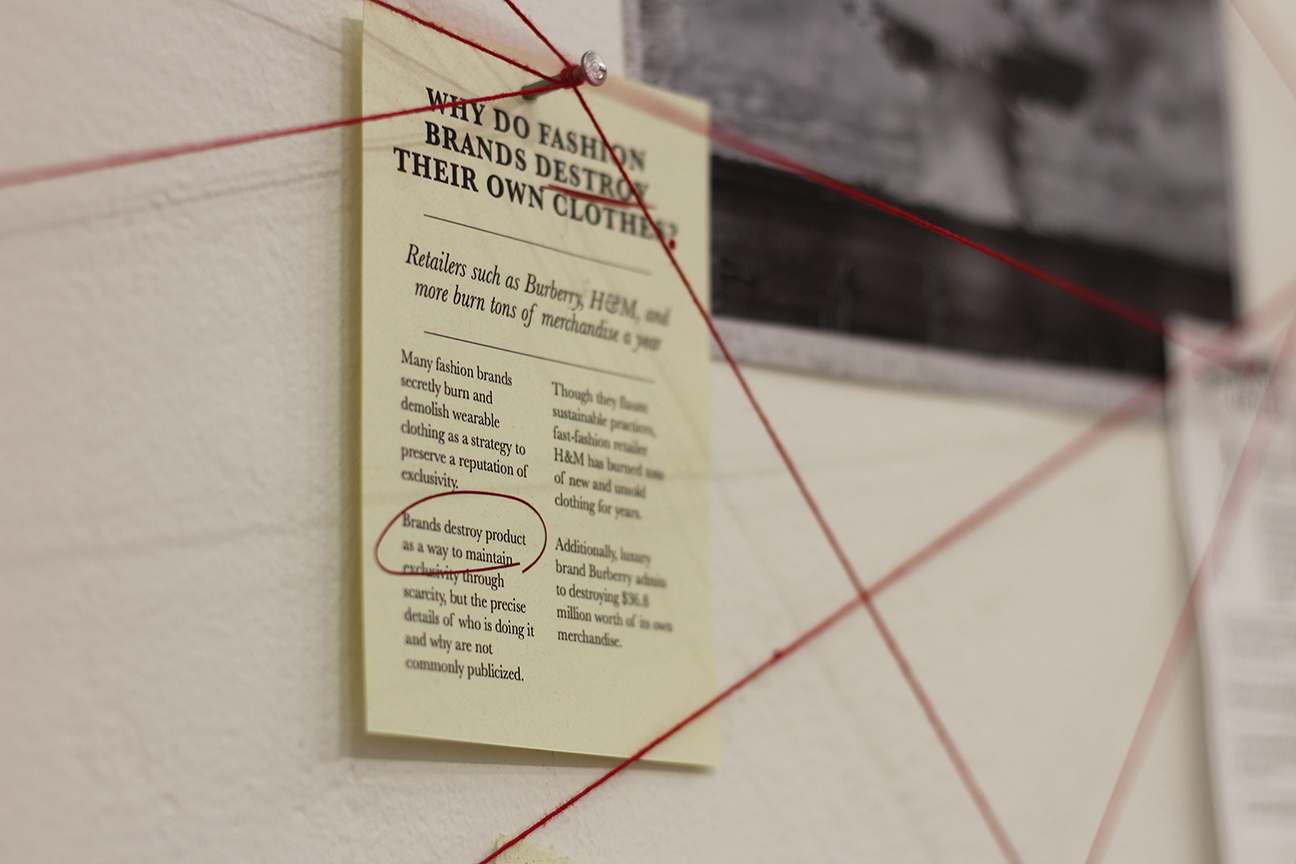 WHY DO FASHION
BRANDS DESTROY
THEIR OWN CLOTHES?
Retailers such as Burberry, H&M, and
more burn tons of merchandise a year
Many fashion brands
secretly burn and
demolish wearable
clothing as a strategy to
preserve a reputation of
exclusivity.
Brands destroy product
as a way to maintain
exclusivity through
scarcity, but the precise
details of who is doing it
and why are not
commonly publicized.
Though they flaunt
sustainable practices,
fast-fashion retailer
H&M has burned tons
of new and unsold
clothing for years.
Additionally, luxury
brand Burberry admits
to destroying $36.8
million worth of its own
merchandise.